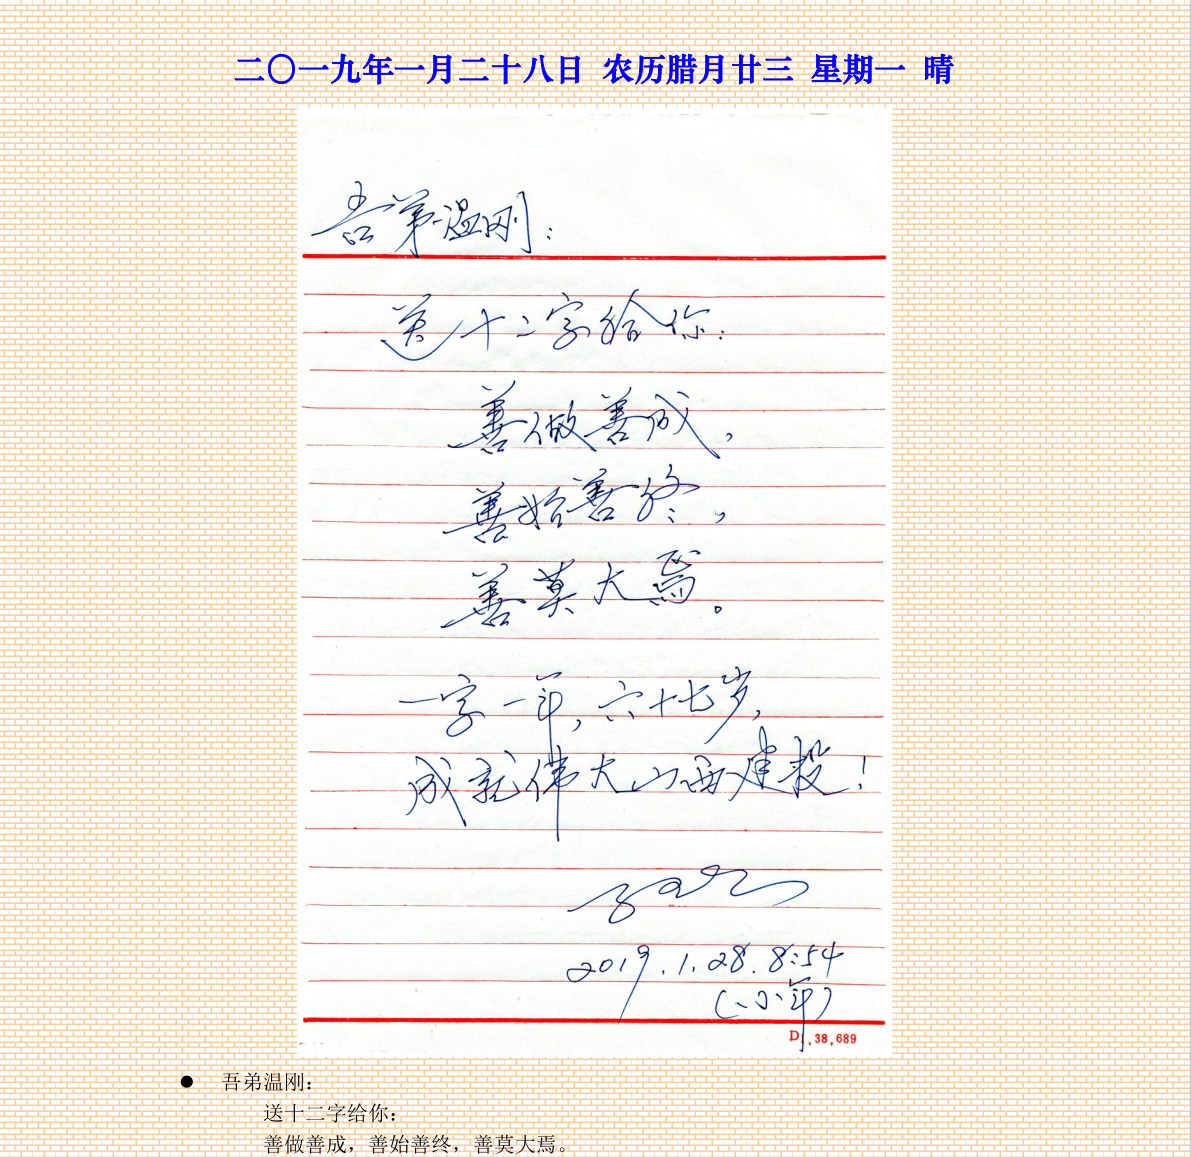 二〇一九年一月二十八日 农历腊月廿三 星期一 晴
吾弟温刚：
送十二字给你：
善做善成，
善始善终，
善莫大焉。
一字一年，六十七岁，
成就伟大山西建投！
2019.1.28.8:54
（小年）
D1.38,689
● 吾弟温刚：
送十二字给你：
善做善成，善始善终，善莫大焉。